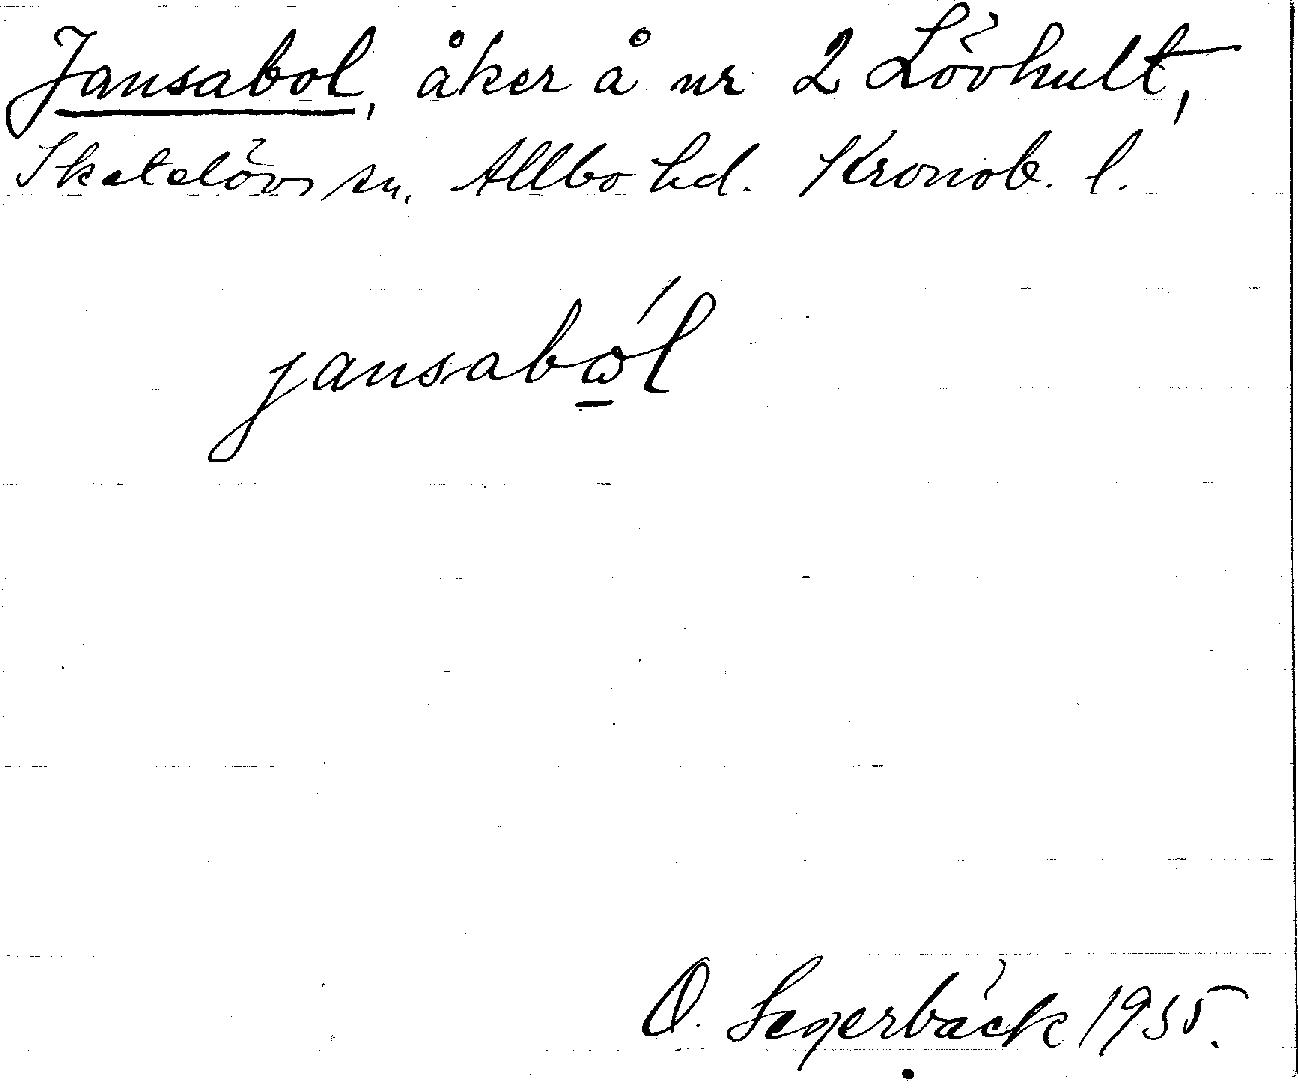 Jansabol, åker å nr 2 Lövhult,
Skatelövs sn. Allbo hd. Kronob. l.
jansabώ̱l
O. Segerbäck 1935.